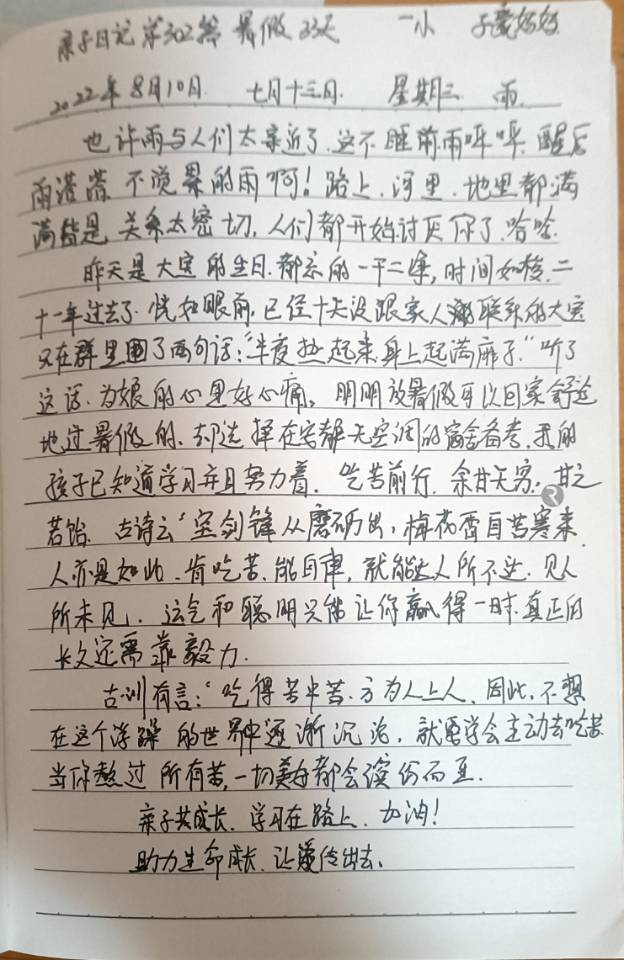 亲子日记第302篇 暑假33天 一小 子豪妈妈
2022年8月10日. 七月十三日. 星期三. 雨.
也许雨与人们太亲近了.这不睡前雨哗哗.醒后
雨涟涟 不愧是的雨啊!路上.河里.地里都满
满皆是 关系太密切,人们都开始讨厌你了.哈哈.
昨天是大宝的生日.都忘的一干二净,时间如梭.二
十一年过去了.恍如眼前.已经十天没跟家人联系的大宝
只在群里回了两句话:"半夜热起来.身上起满痱子."听了
这话.为娘的心里好心痛。明明放暑假可以回家舒适
地过暑假的.却选择在安静无空调的宿舍备考.我的
孩子已知道学习并且努力着.吃苦前行.余甘无穷.甘之
若饴.古诗云"宝剑锋从磨砺出,梅花香自苦寒来.
人亦是如此.肯吃苦.能自律,就能达人所不达.见人
所未见.运气和聪明只能让你赢得一时.真正的
长久还需靠毅力.
古训有言:"吃得苦中苦.方为人上人.因此,不想
在这个浮躁的世界中逐渐沉沦.就要学会主动去吃苦.
当你熬过所有苦,一切美好都会缤纷而至.
亲子共成长.学习在路上.加油!
助力生命成长.让爱传出去.